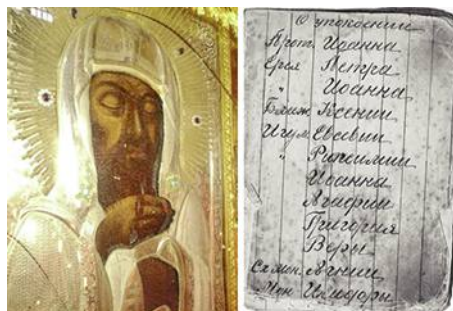 О упокоении
Прот. Иоанна
Іерея Петра
" Иоанна
Блаж. Ксении
Игум. Евсевии
" Рипсимии
Иоанна
Агафии
Григория
Веры
Сх. мон. Аннии
Мон. Исидоры